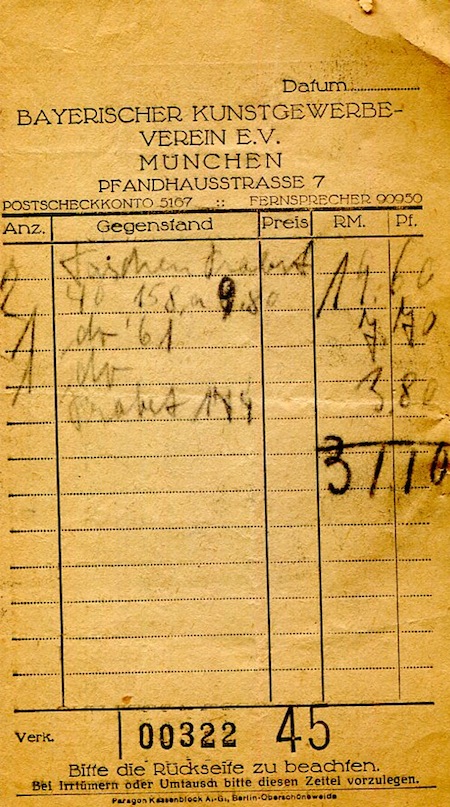 Datum
BAYERISCHER KUNSTGEWERBE-
VEREIN E.V.
MÜNCHEN
PFANDHAUSSTRASSE 7
POSTSCHECKKONTO 5167 :: FERNSPRECHER 90950
Anz. Gegenstand Preis RM. Pf.
19.60
2 158, a 9.80
1 do 61 7.70
1 do
144 3,80
31 10
Verk. 00322 45
Bitte die Rückseite zu beachten.
Bei Irrtümern oder Umtausch bitte diesen Zettel vorzulegen.
Paragon Kassenblock A.-G., Berlin-Oberschöneweide